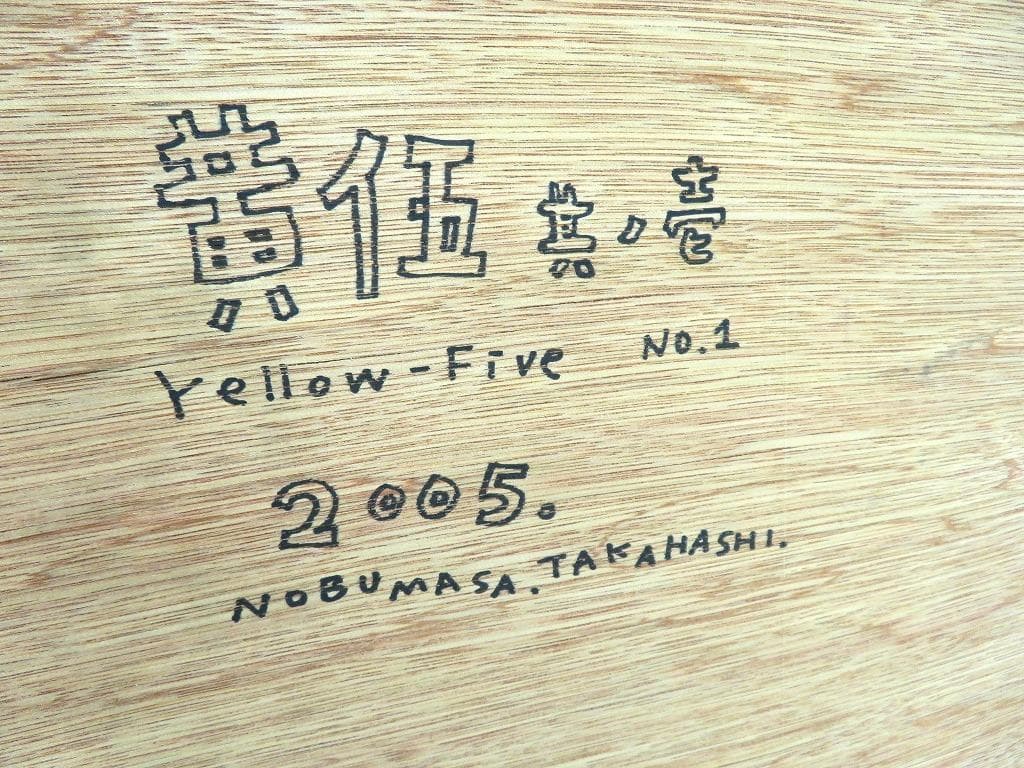 黄伍 其ノ壱
Yellow-Five NO.1
2005.
NOBUMASA.TAKAHASHI.